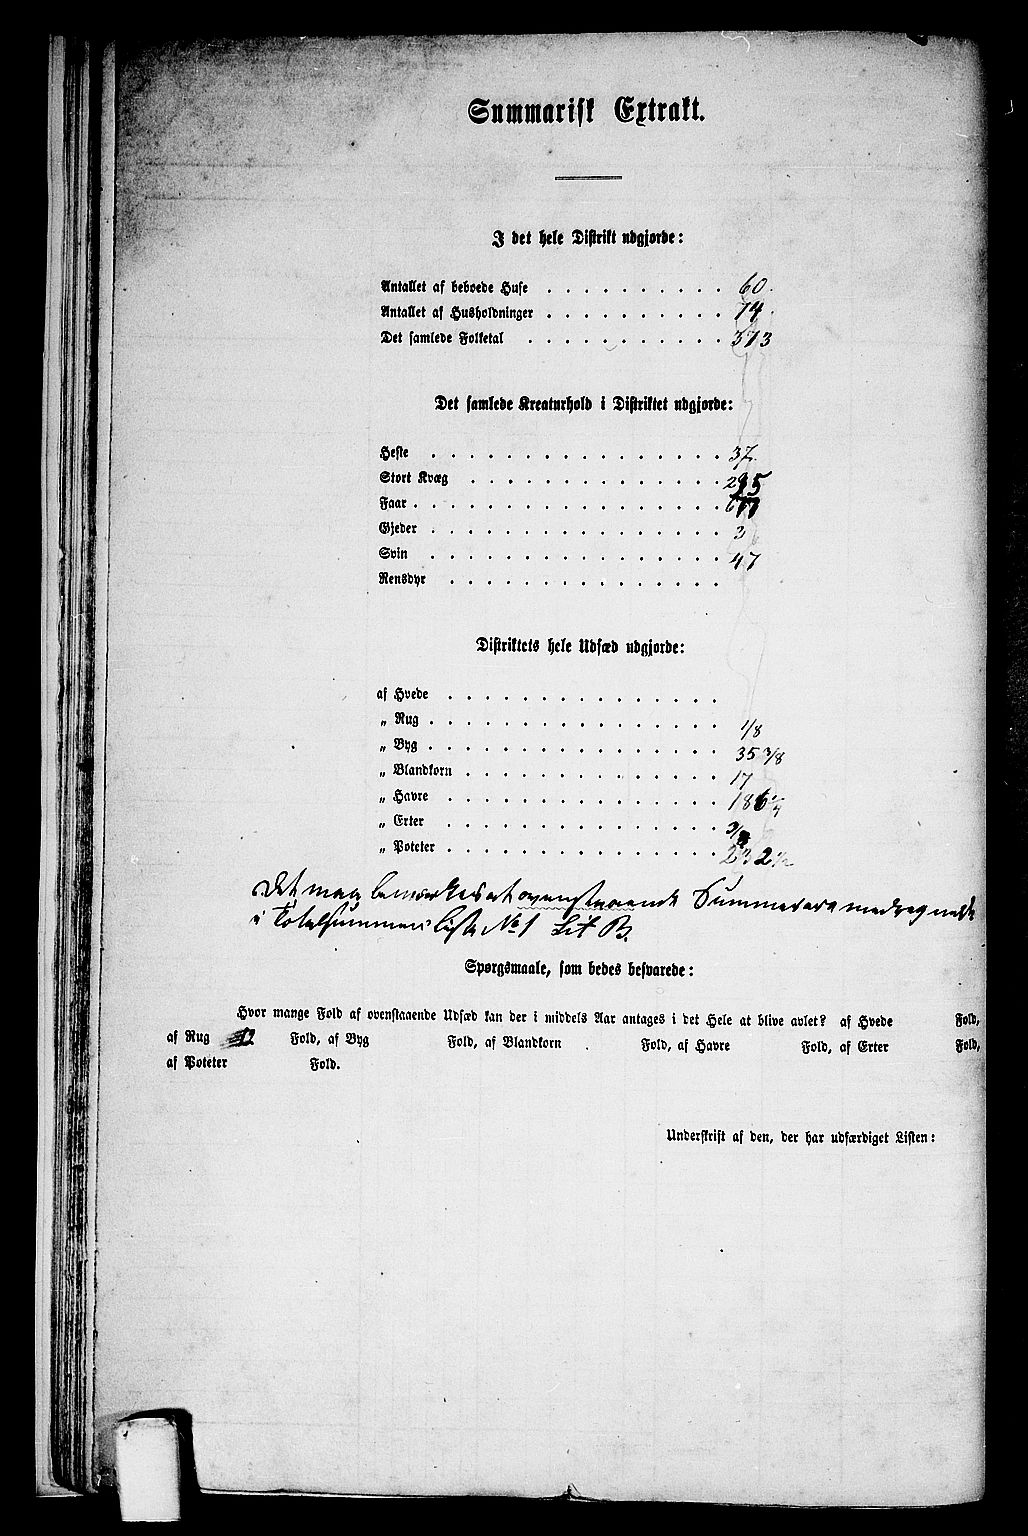 Summarisk Extrakt.
I det hele Distrikt udgjorde:
Antallet af beboede Huse . . . . . . . . . . 60.
Antallet af Husholdninger . . . . . . . . . . 74.
Det samlede Folketal . . . . . . . . . . . 373
Det samlede Kreaturhold i Distriktet udgjorde:
Heste . . . . . . . . . . . . . . . 37.
Stort Kvæg . . . . . . . . . . . . . 295
Faar . . . . . . . . . . . . . . . .
Gjeder . . . . . . . . . . . . . . . 3
Svin . . . . . . . . . . . . . . . 47
Rensdyr . . . . . . . . . . . . . .
Distriktets hele Udsæd udgjorde:
af Hvede . . . . . . . . . . . . . .
„ Rug . . . . . . . . . . . . . . . 1/8
„ Byg . . . . . . . . . . . . . . . 35 3/8
„ Blandkorn . . . . . . . . . . . . . 17
„ Havre . . . . . . . . . . . . . . 186 1/4
„ Erter . . . . . . . . . . . . . .
„ Poteter . . . . . . . . . . . . . .
Det maa bemærkes at ovenstaaende Summer ere medregnede
i Totalsummens liste No 1 Lit B.
Spørgsmaale, som bedes besvarede:
Hvor mange Fold af ovenstaaende Udsæd kan der i middels Aar antages i det Hele at blive avlet? af Hvede Fold,
af Rug Fold, af Byg Fold, af Blandkorn Fold, af Havre Fold, af Erter Fold,
af Poteter Fold.
Underskrift af den, der har udfærdiget Listen: